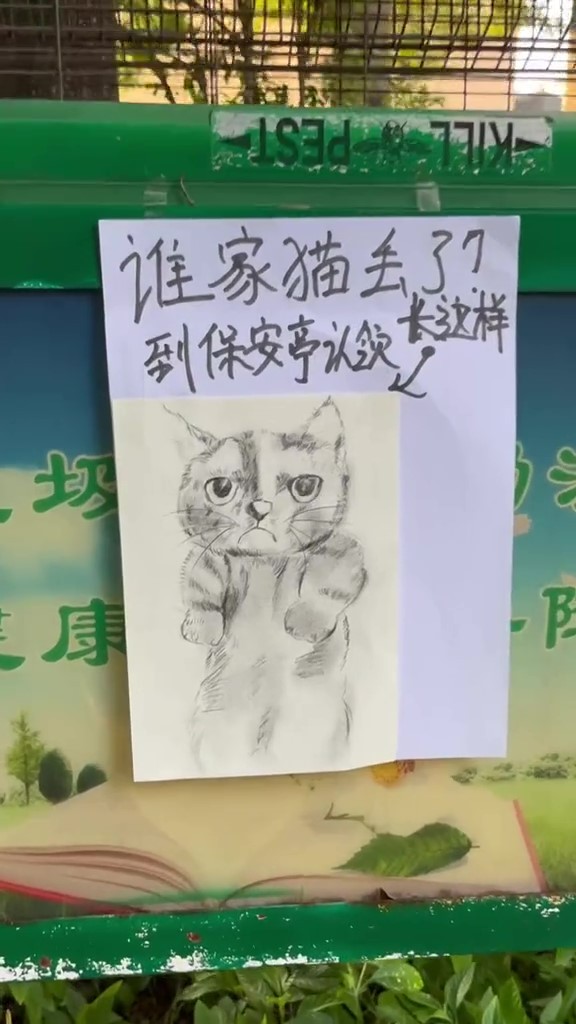 KILL PEST
谁家猫丢了?
长这样
到保安亭认领
圾
健康